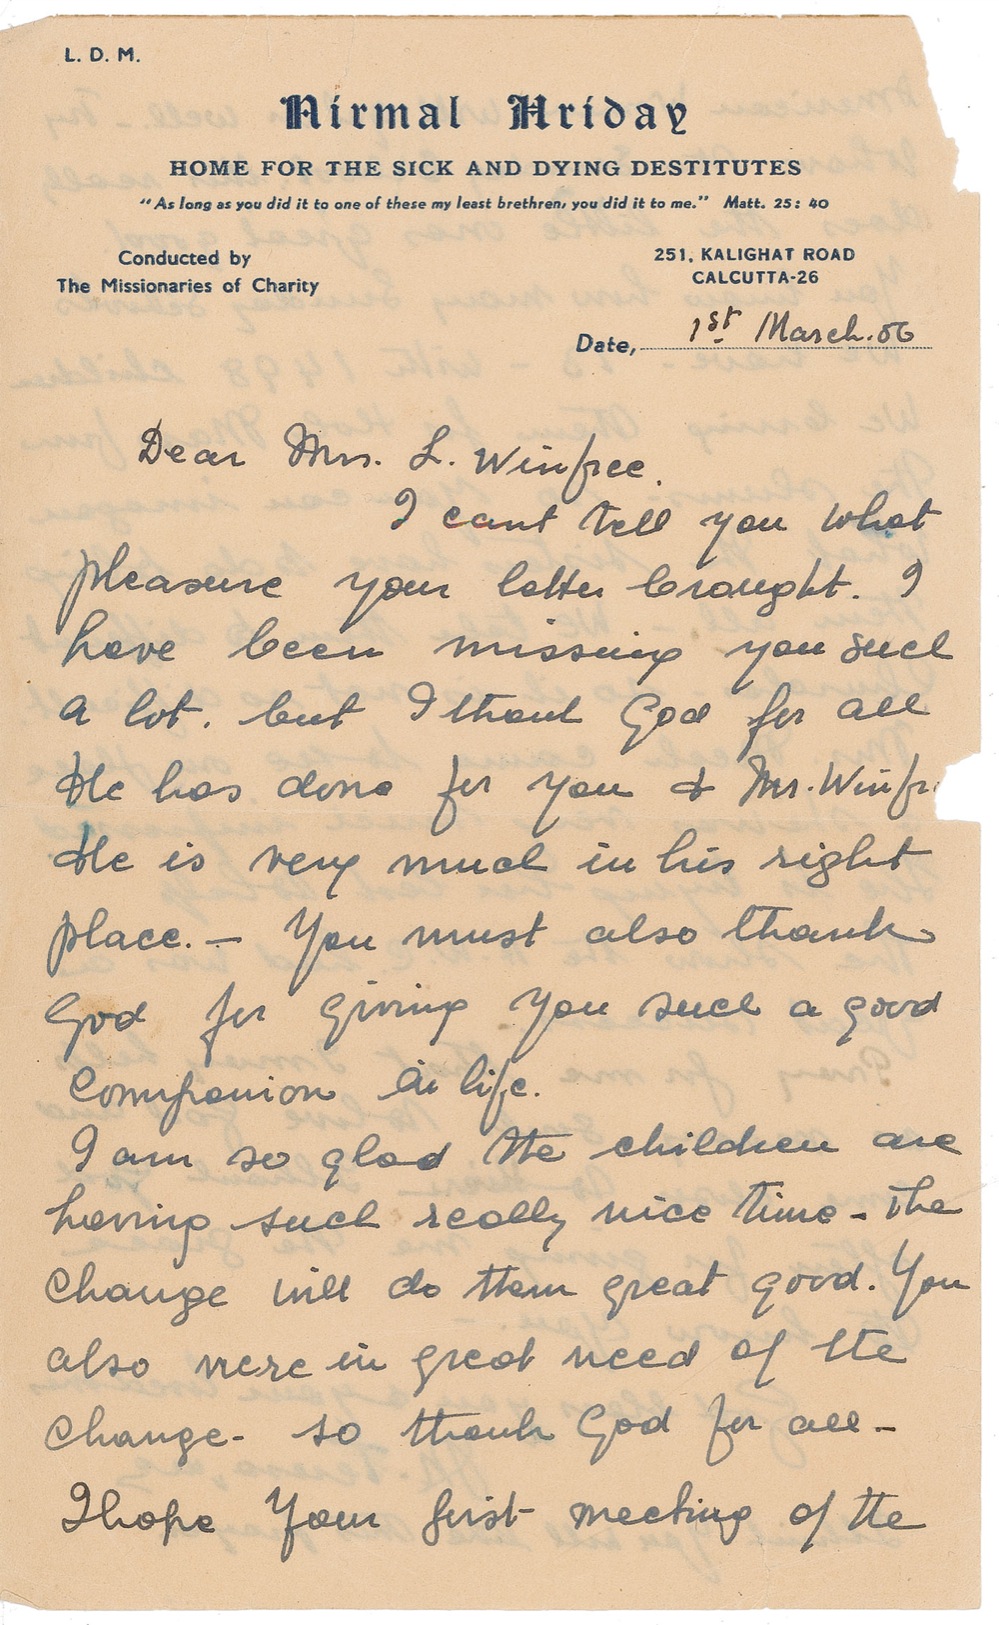 L. D. M.
Nirmal Hriday
HOME FOR THE SICK AND DYING DESTITUTES
"As long as you did it to one of these my least brethren, you did it to me." Matt. 25: 40
Conducted by
The Missionaries of Charity
251, KALIGHAT ROAD
CALCUTTA-26
Date, 1st March. 56
Dear Mrs. L. Winfree.
I cant tell you what
pleasure your letter brought. I
have been missing you such
a lot. but I thank God for all
He has done for you & Mr. Winfr
He is very much in his right
place. — You must also thank
God for giving you such a good
Companion in life.
I am so glad the children are
having such really nice time - The
Change will do them great good. You
also were in great need of the
Change - so thank God for all -
I hope your first meeting of the